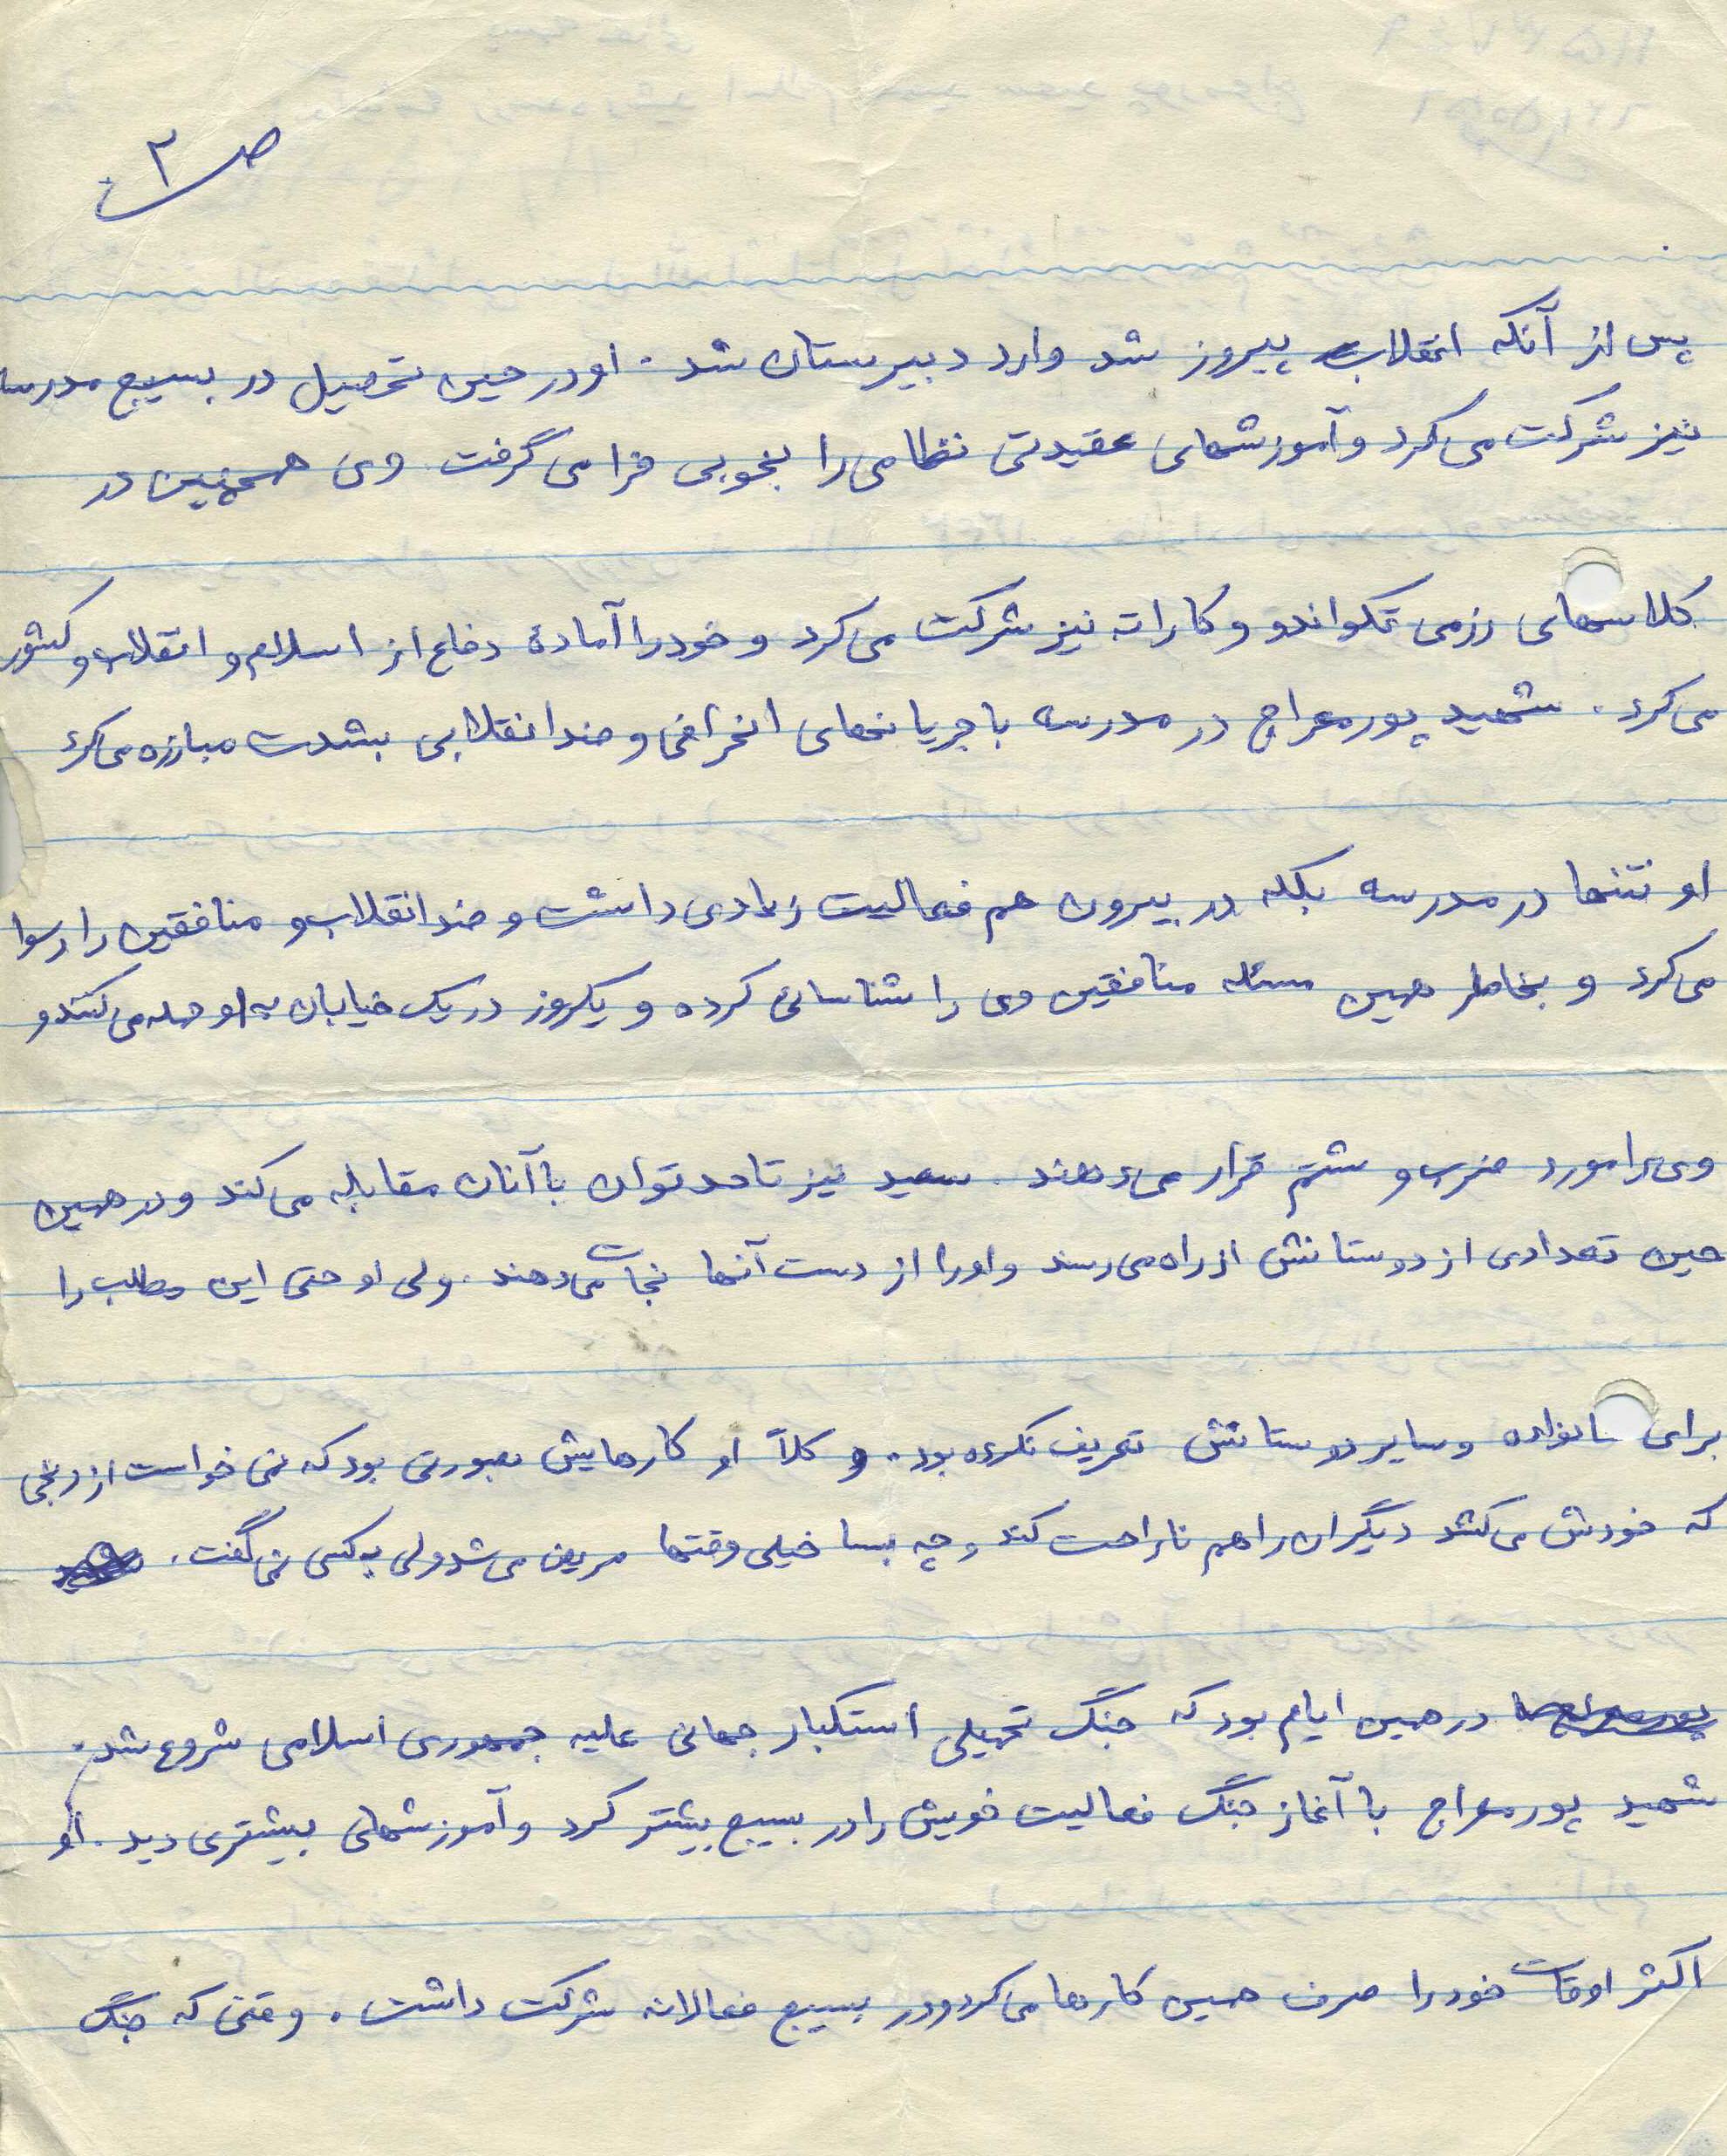 ص ۲
پس از آنکه انقلاب پیروز شد وارد دبیرستان شد . او در حین تحصیل در بسیج مدرسه
نیز شرکت می‌کرد و آموزشهای عقیدتی نظامی را بخوبی فرا می‌گرفت وی همچنین در
کلاسهای رزمی تکواندو و کاراته نیز شرکت می‌کرد و خود را آمادهٔ دفاع از اسلام و انقلاب و کشور
می‌کرد . شهید پورمعراج در مدرسه با جریانهای انحرافی و ضد انقلابی بشدت مبارزه می‌کرد
او نتنها در مدرسه بلکه در بیرون هم فعالیت زیادی داشت و ضد انقلاب و منافقین را رسوا
می‌کرد و بخاطر همین مسئله منافقین وی را شناسائی کرده و یکروز در یک خیابان به او حمله می‌کنند و
وی را مورد ضرب و شتم قرار می‌دهند . سعید نیز تا حد توان با آنان مقابله می‌کند و در همین
حین تعدادی از دوستانش از راه می‌رسند و او را از دست آنها نجات می‌دهند . ولی او حتی این مطلب را
برای خانواده و سایر دوستانش تعریف نکرده بود . و کلاً او کارهایش بصورتی بود که نمی‌خواست از رنجی
که خودش می‌کشد دیگران را هم ناراحت کند و چه بسا خیلی وقتها مریض می‌شد ولی به کسی نمی‌گفت .
در همین ایام بود که جنگ تحمیلی استکبار جهانی علیه جمهوری اسلامی شروع شد .
شهید پورمعراج با آغاز جنگ فعالیت خویش را در بسیج بیشتر کرد و آموزشهای بیشتری دید . او
اکثر اوقات خود را صرف همین کارها می‌کرد و در بسیج فعالانه شرکت داشت . وقتی که جنگ